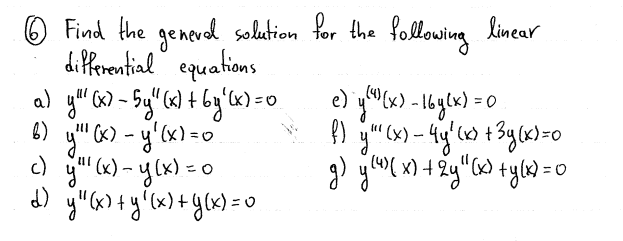 ⑥ Find the general solution for the following linear
differential equations
a) y'''(x) - 5y''(x) + 6y'(x) = 0
b) y'''(x) - y'(x) = 0
c) y'''(x) - y(x) = 0
d) y''(x) + y'(x) + y(x) = 0
e) y⁽⁴⁾(x) - 16y(x) = 0
f) y'''(x) - 4y'(x) + 3y(x) = 0
g) y⁽⁴⁾(x) + 2y''(x) + y(x) = 0